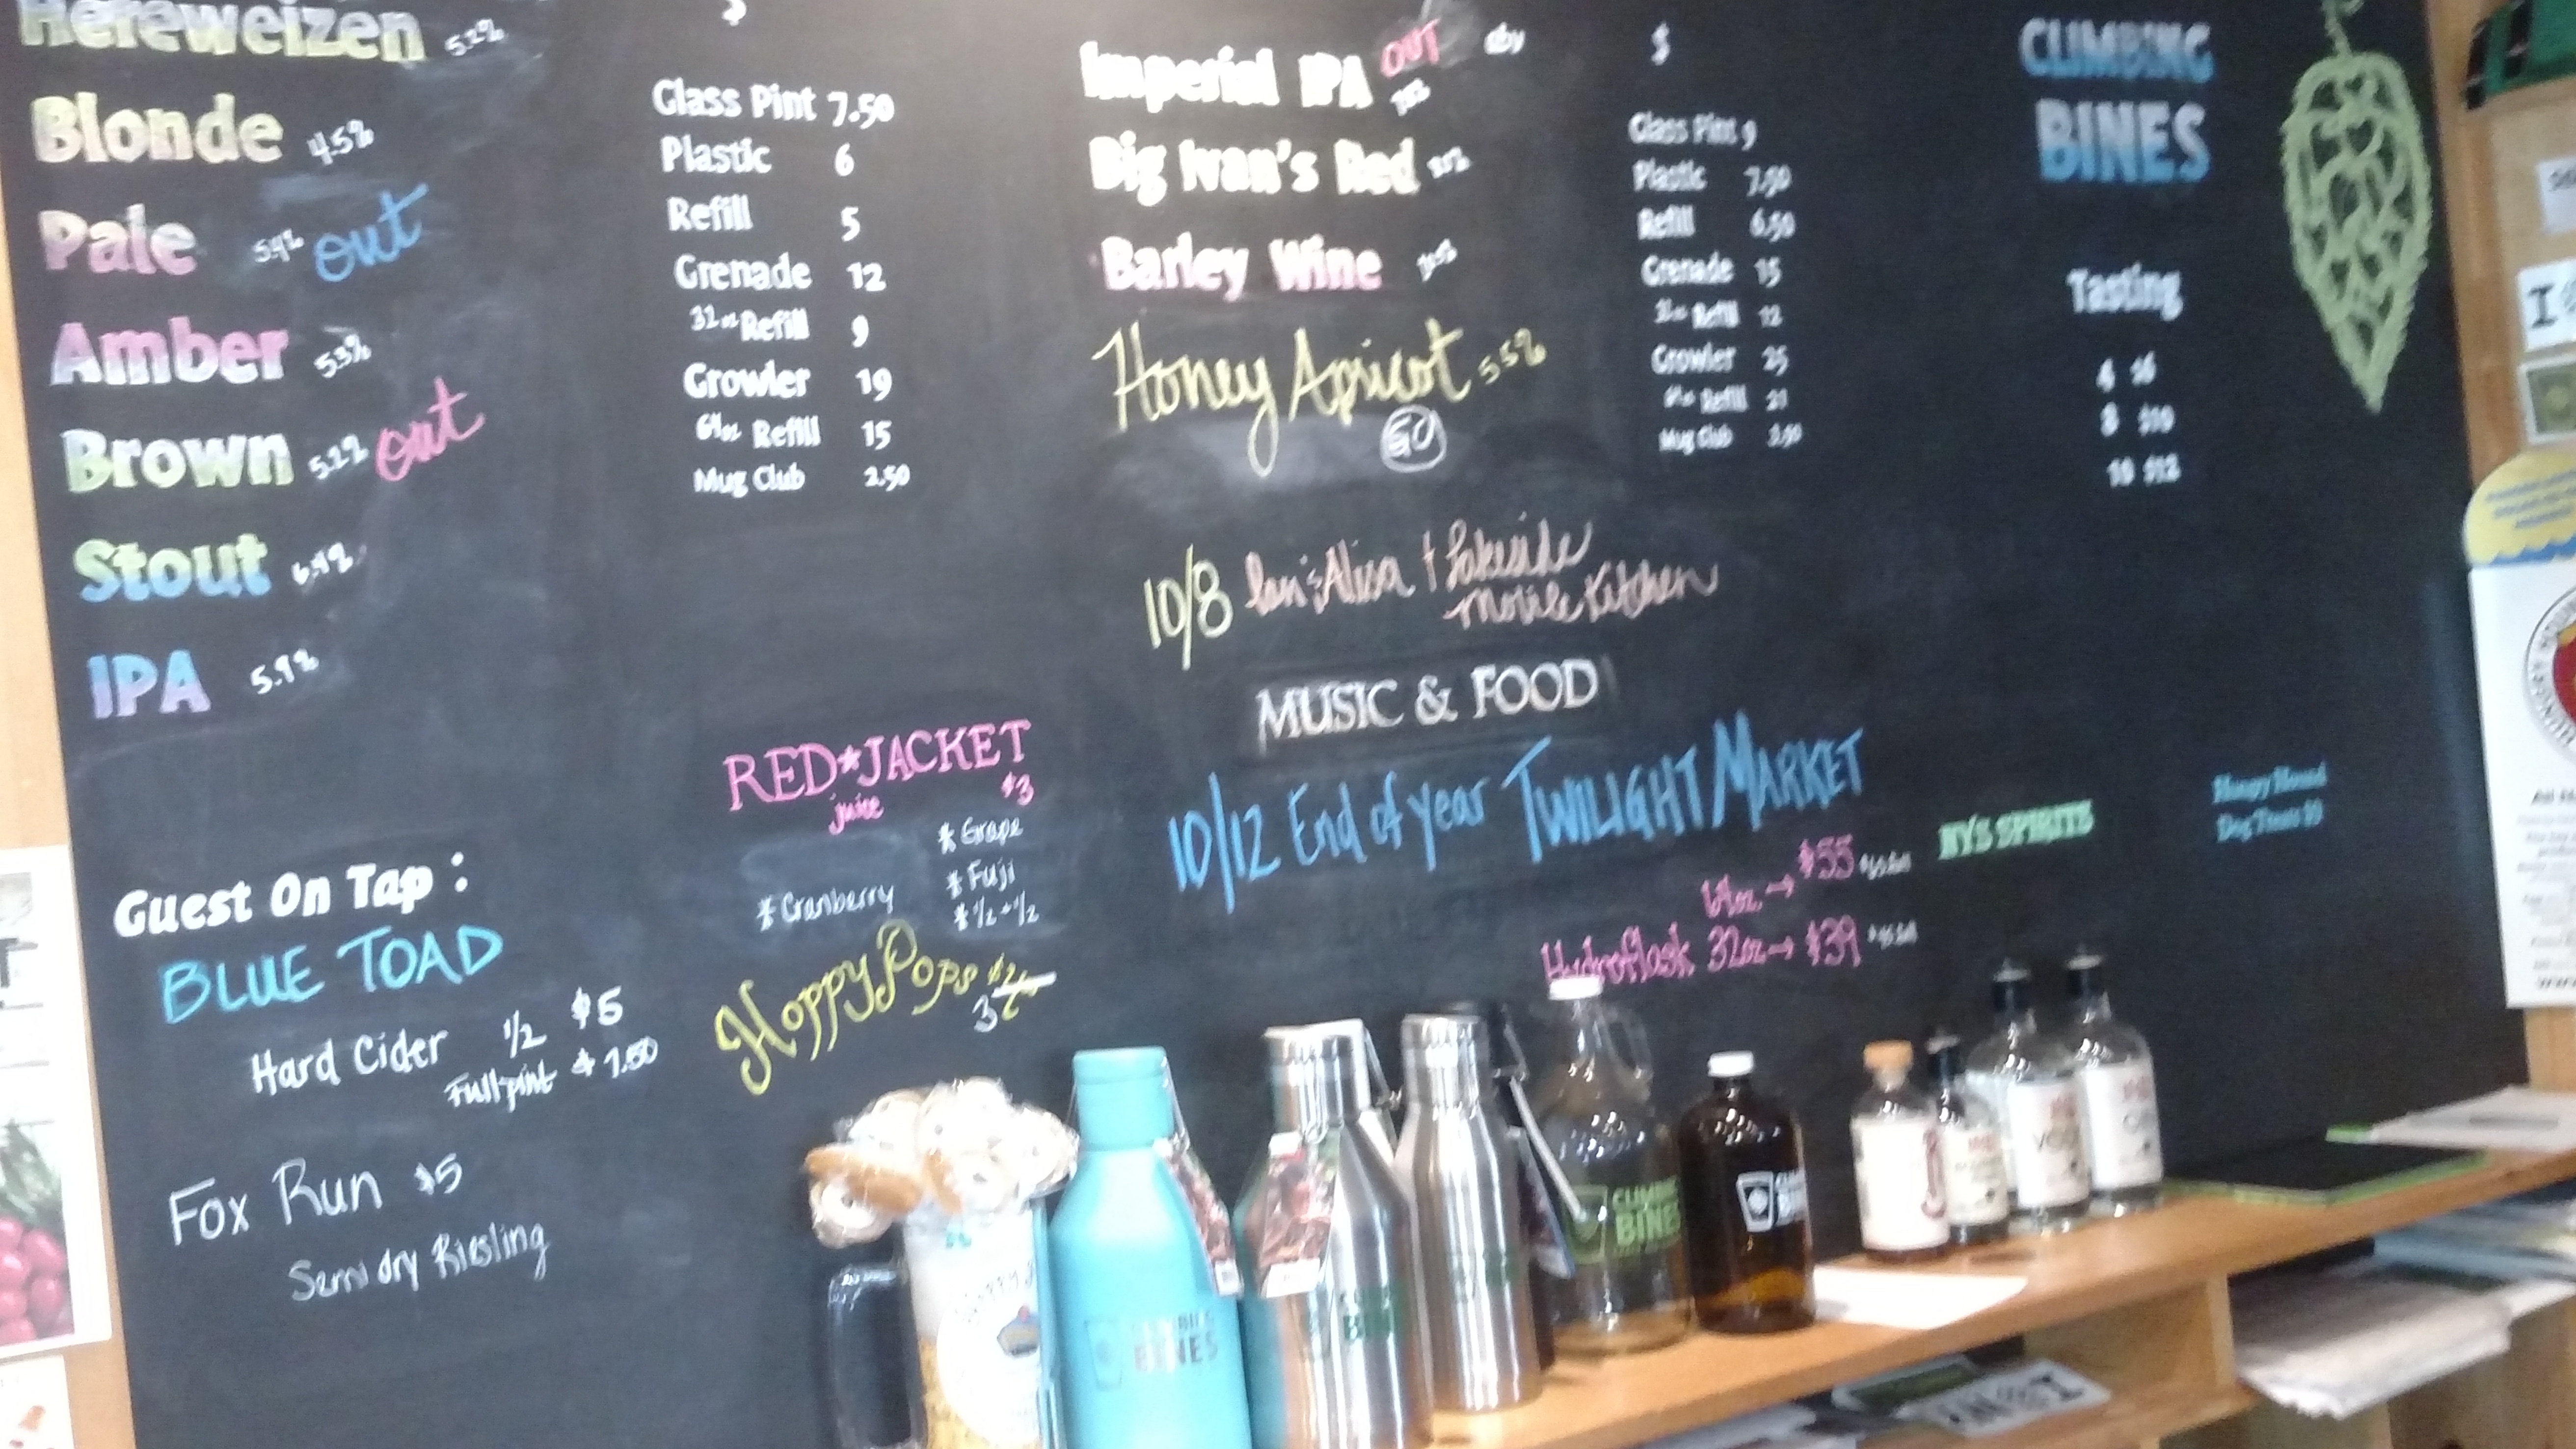 Hefeweizen 5.2%
Blonde 4.5%
Pale 5.4% out
Amber 5.3%
Brown 5.2% out
Stout 6.4%
IPA 5.9%
$
Glass Pint 7.50
Plastic 6
Refill 5
Grenade 12
32oz Refill 9
Growler 19
64oz Refill 15
Mug Club 2.50
Imperial IPA OUT
Big Ivan's Red
Barley Wine
Honey Apricot 5.5%
GO
$
Glass Pint 9
Plastic 7.50
Refill 6.50
Grenade 15
32oz Refill 12
Growler 25
64oz Refill 21
Mug Club 3.50
CLIMBING
BINES
Tasting
4 $6
8 $10
10 $12
10/8 Alisa + Lakeside
Mobile Kitchen
MUSIC & FOOD
10/12 End of year TWILIGHT MARKET
64oz. → $55
Hydroflask 32oz → $39
NYS SPIRITS
Dog Treats
RED★JACKET
juice $3
* Grape
* Fuji
* Cranberry
* 1/2 + 1/2
HoppyPops
3
Guest On Tap:
BLUE TOAD
Hard Cider 1/2 $5
Full pint $7.50
Fox Run $5
Semi dry Riesling
CLIMBING
BINES
BINES
BINES